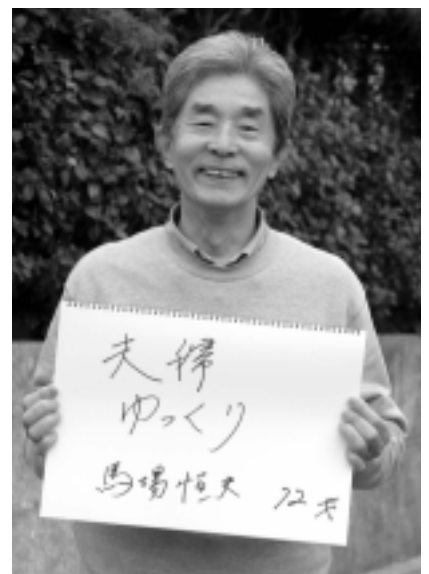 夫婦
ゆっくり
馬場恒夫 72才